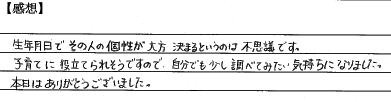 【感想】
生年月日でその人の個性が大方決まるというのは不思議です。
子育てに役立てられそうですので、自分でも少し調べてみたい気持ちになりました。
本日はありがとうございました。